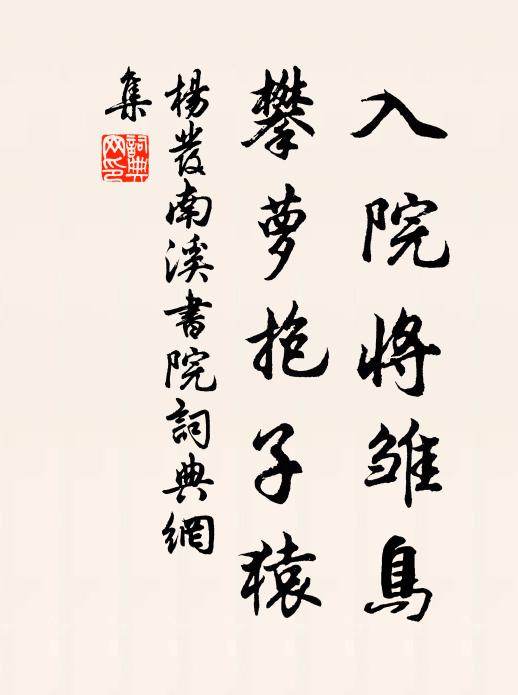 入院將雛鳥
攀萝抱子猿
楊發南溪書院詞典網
集
詞典網印